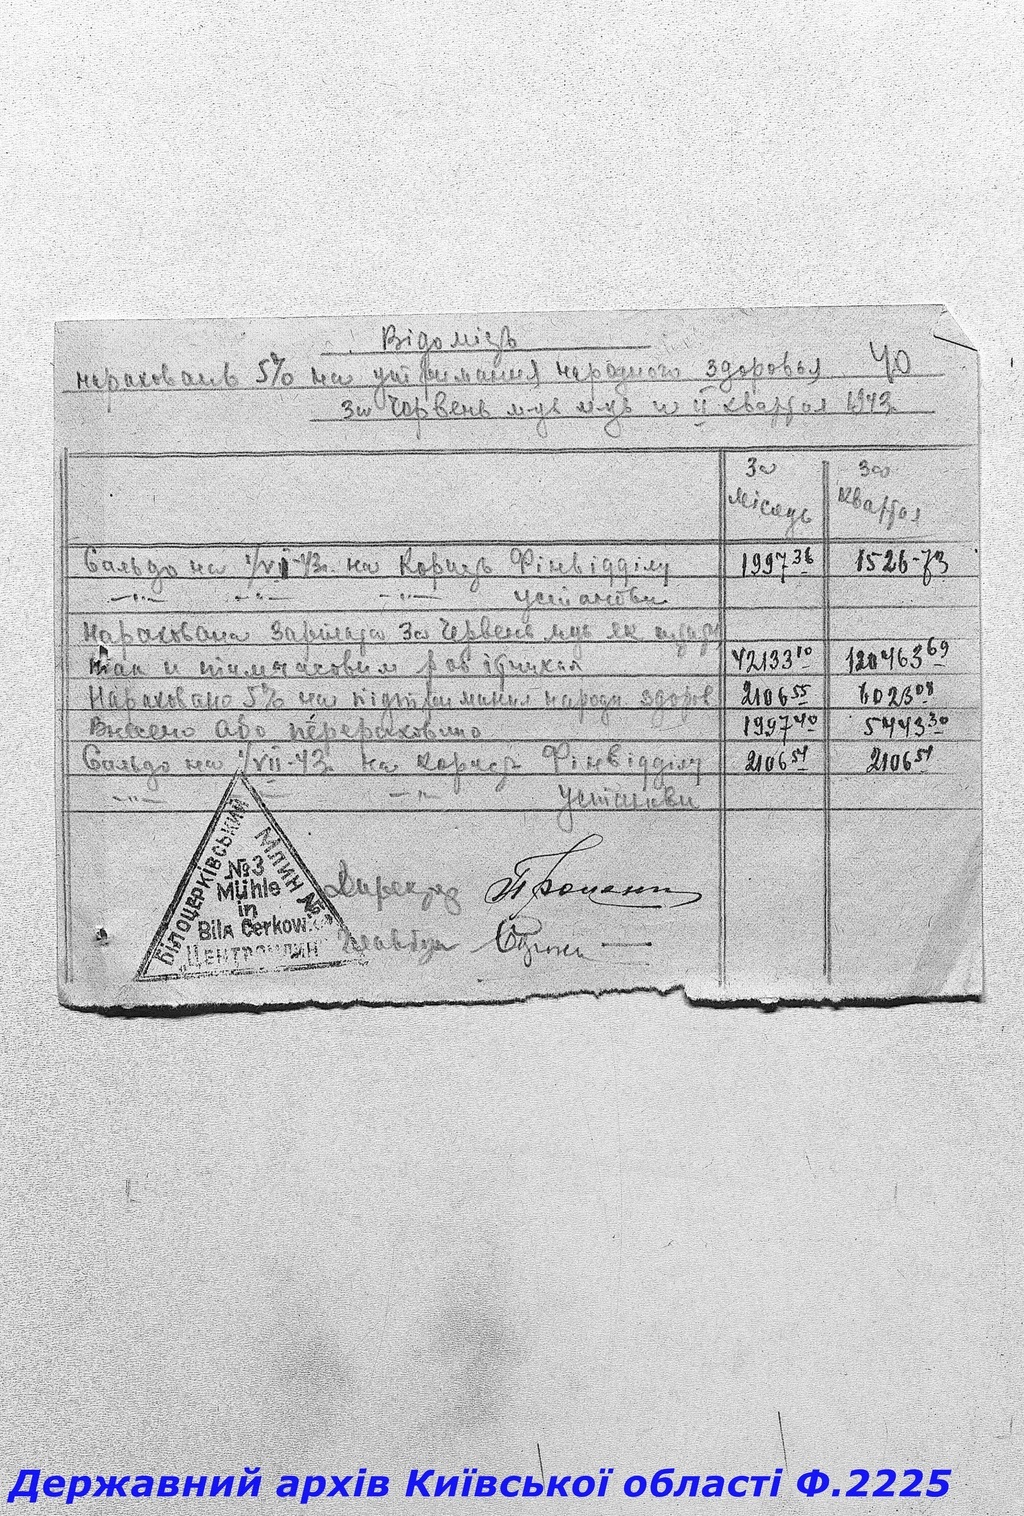 Відомість
нараховань 5% на утримання народного здоровья 40
За Червень м-ць и II квартал 1943
За місяць
за квартал
Сальдо на 1/VII-43 на Користь Фінвідділу 1997 36 1526-73
-"- -"- -"- установи
Нарахована Зарплата За Червень м-ць як штатн
так и тимчасовим робітникам 42133 10 120463 69
Нараховано 5% на підтримання народн здоров 2106 55 6023 08
Внесено або перераховано 1997 40 5443 30
Сальдо на 1/VII-43 на користь Фінвідділу 2106 51 2106 51
-"- -"- -"- Установи
Білоцерківський Млин №3
№3
Mühle
in
Bila Cerkow
"Центромлин"
Директор
Главбух
Державний архів Київської області Ф.2225